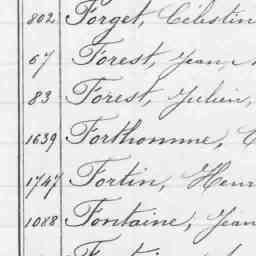 802 Forget, Célestin
67 Forest, Jean,
83 Forest, Julien,
1639 Forthomme,
1747 Fortin, Henri
1088 Fontaine, Jean